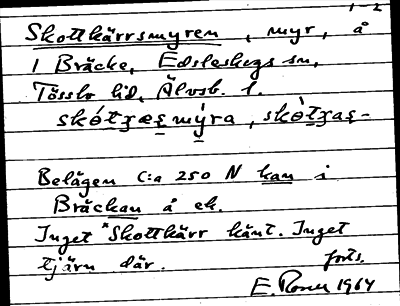 1-2
Skottkärrsmyren, myr, å
1 Bräcke, Edsleskogs sn,
Tössbo hd, Älvsb. l.
Belägen c:a 250 N kan i
Bräckan å ek.
Inget *Skottkärr känt. Inget
tjärn där. forts.
1964